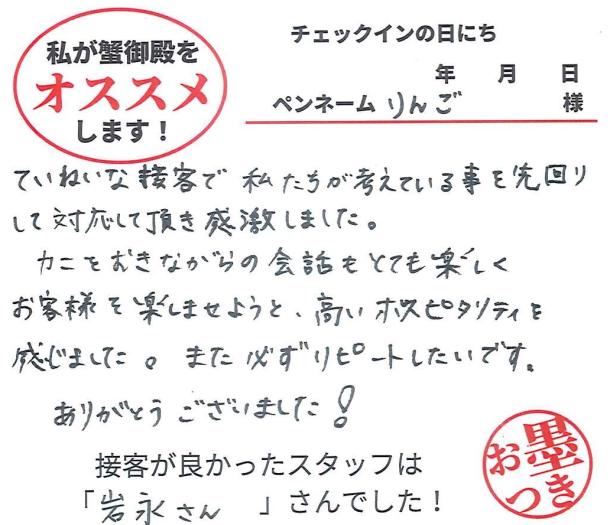 私が蟹御殿を
オススメ
します！
チェックインの日にち
年 月 日
ペンネーム りんご 様
ていねいな接客で 私たちが考えている事を先回り
して対応して頂き感激しました。
カニをむきながらの会話もとても楽しく
お客様を楽しませようと、高いホスピタリティを
感じました。また必ずリピートしたいです。
ありがとうございました!
接客が良かったスタッフは
「岩永さん 」さんでした！
お墨つき